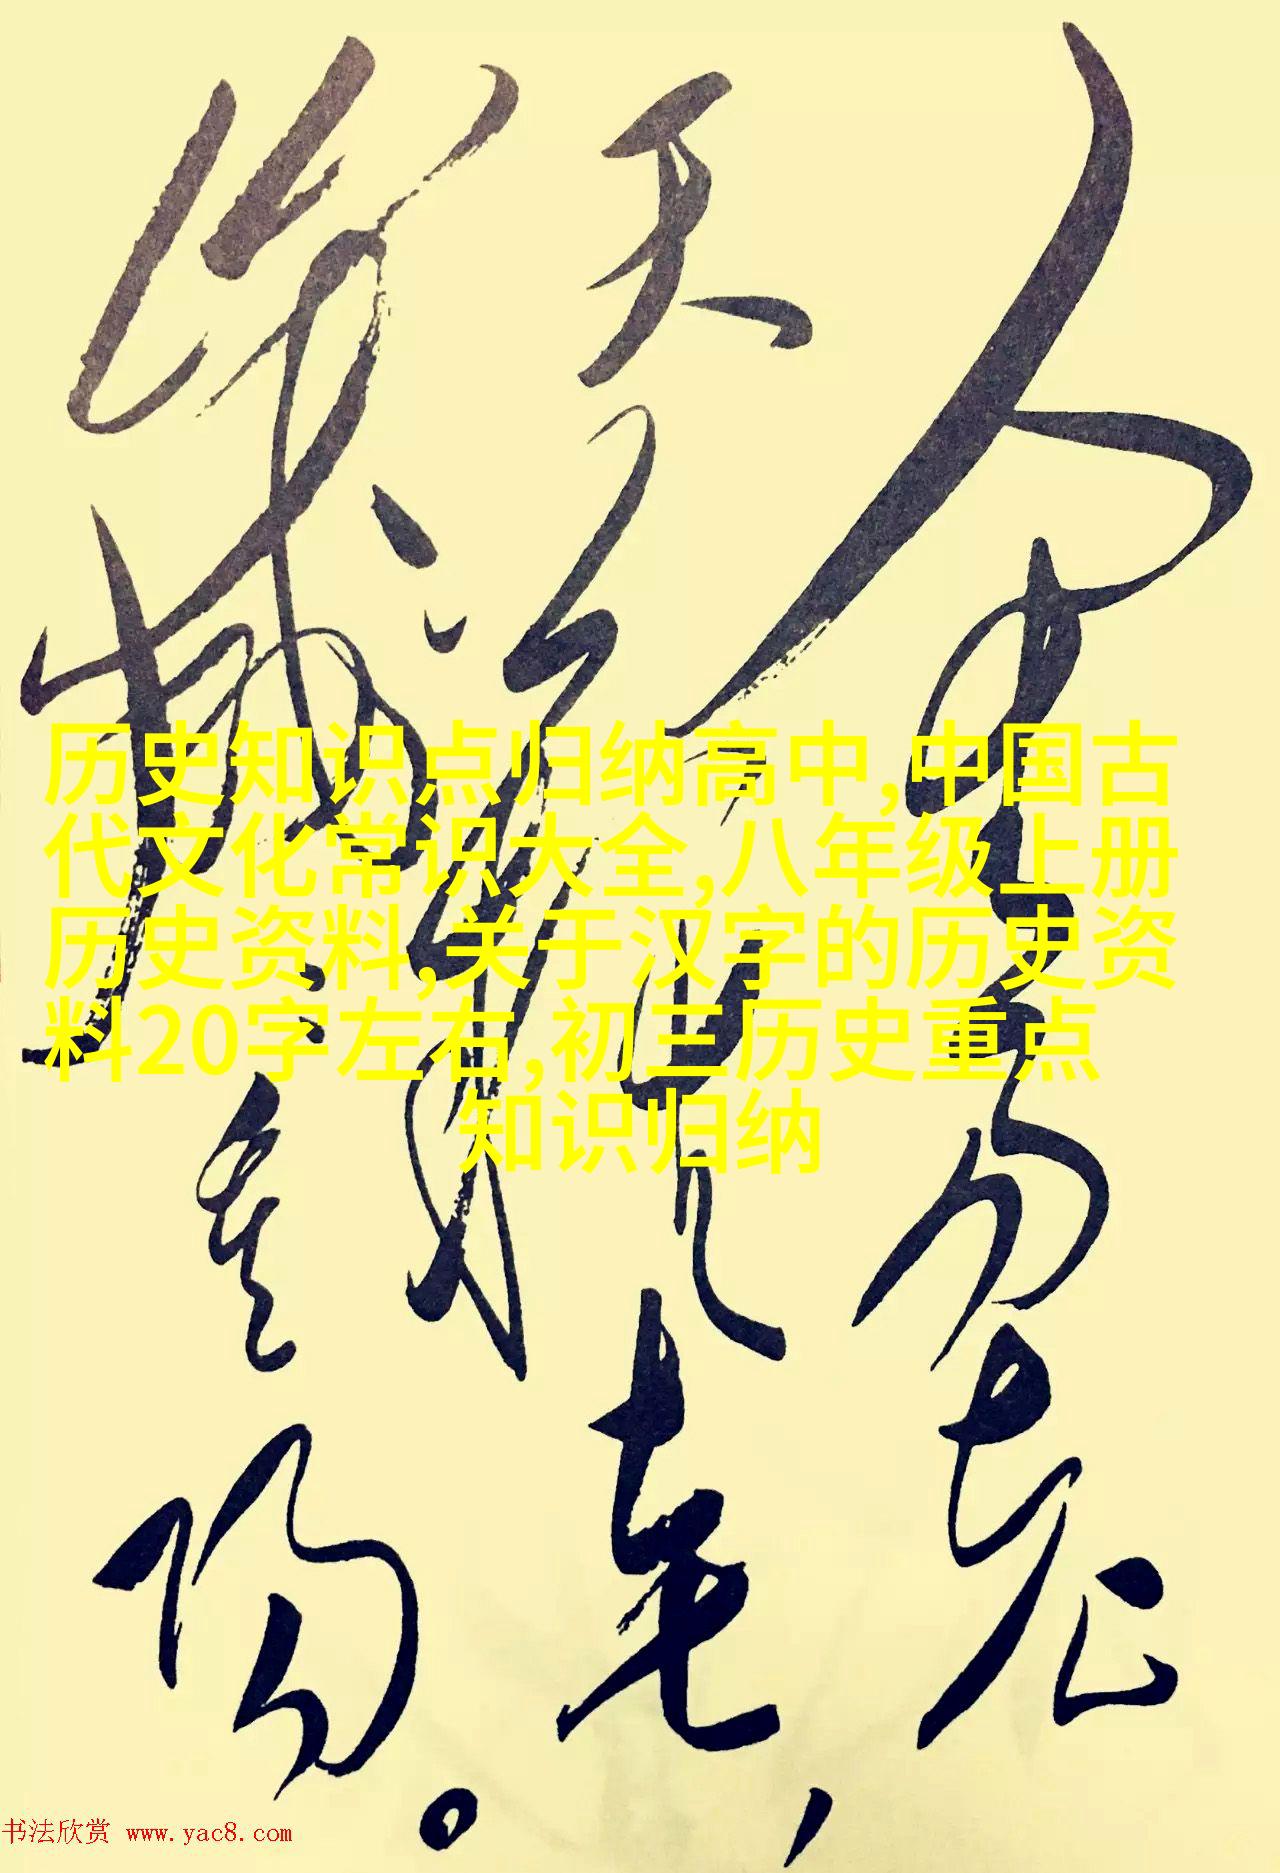 人生易老
天難老，
歲歲重陽。
历史知识点归纳高中,中国古
代文化常识大全,八年级上册
历史资料,关于汉字的历史资
料20字左右,初三历史重点
知识归纳
书法欣赏 www.yac8.com